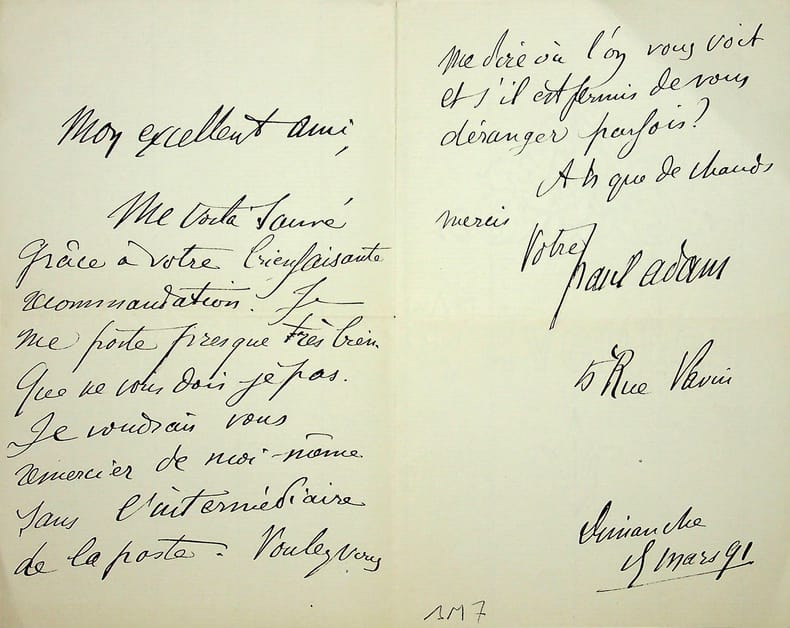 Mon excellent ami,
Me voilà sauvé
Grâce à votre bienfaisante
recommandation. Je
me porte presque très bien.
Que ne vous dois-je pas.
Je voudrais vous
remercier de moi-même
sans l'intermédiaire
de la poste. Voulez vous
me dire où l'on vous voit
et s'il est permis de vous
déranger parfois?
Ah que de chauds
mercis
Votre
Paul Adam
5 Rue Vavin
Dimanche
15 mars 91